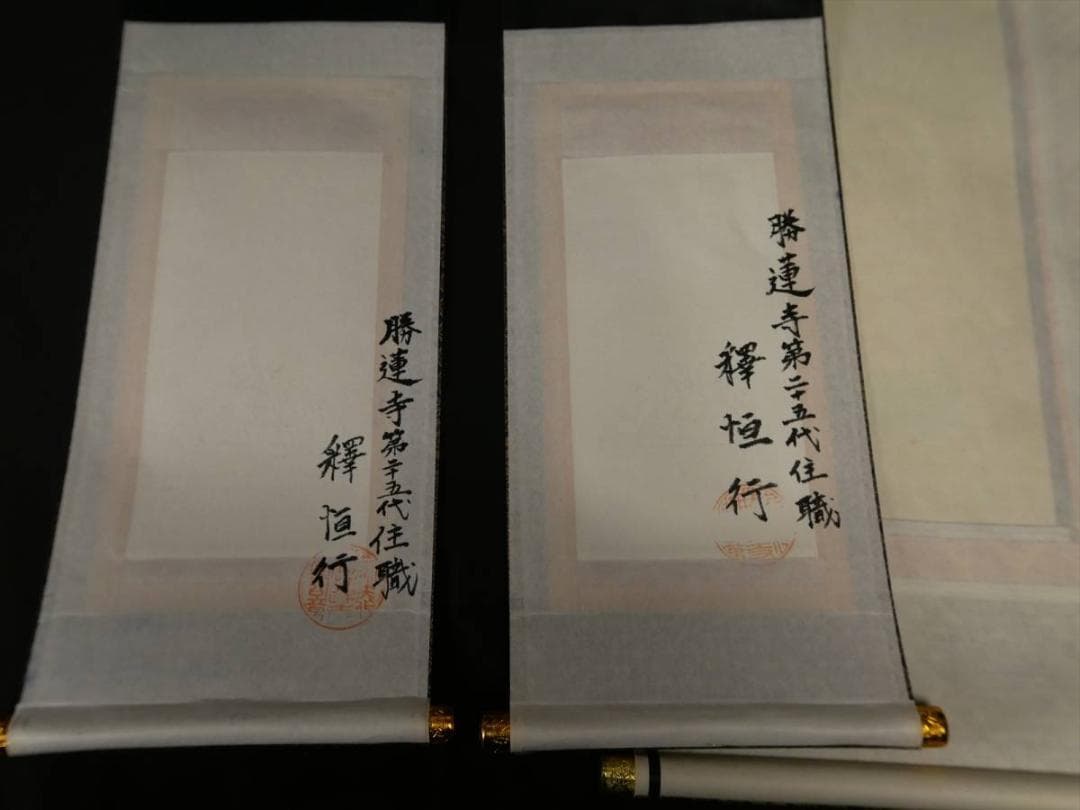 勝蓮寺第二十五代住職
釋恒行
勝蓮寺第二十五代住職
釋恒行